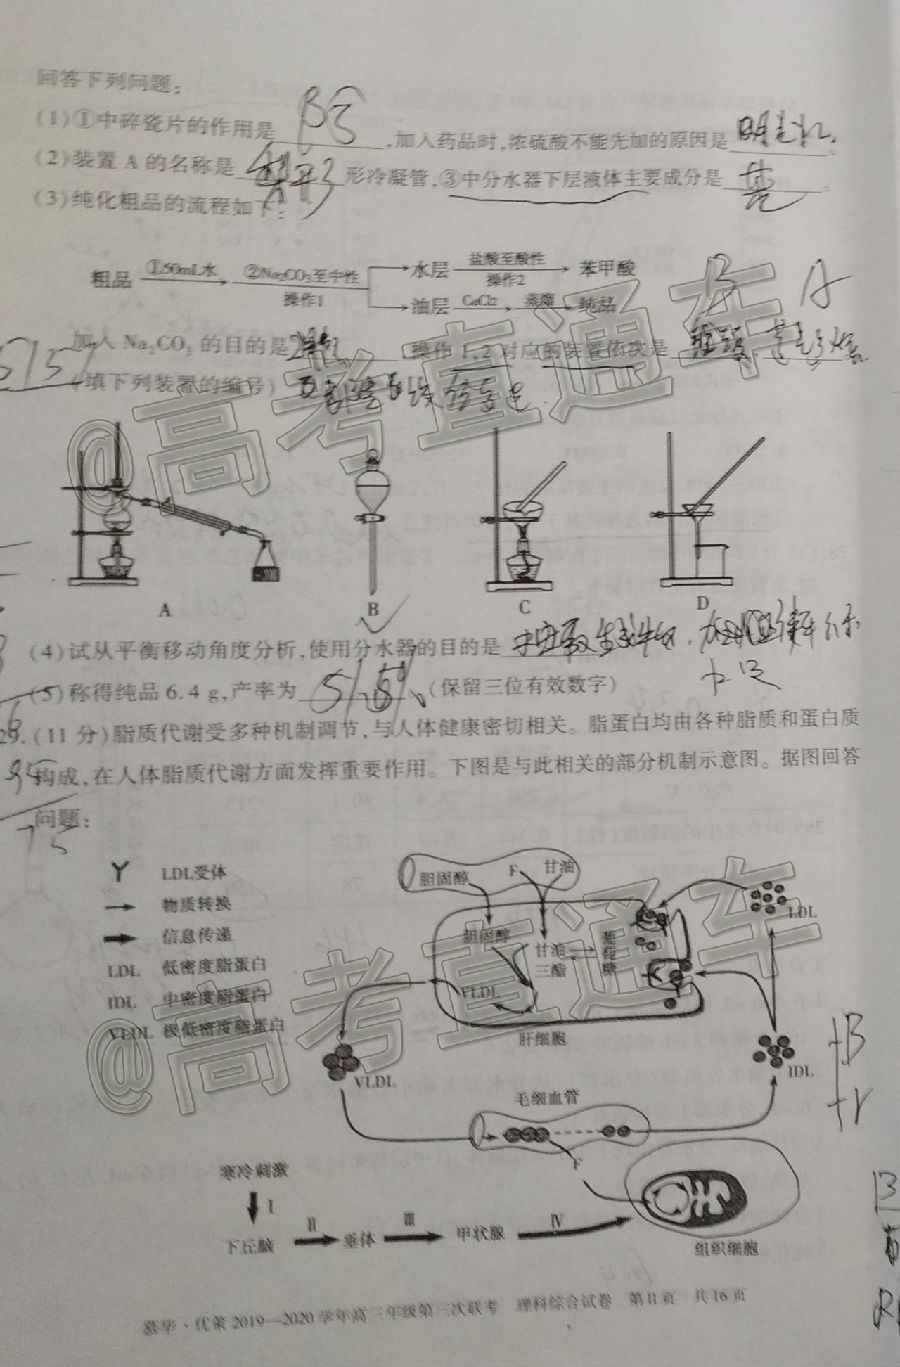 回答下列问题:
(1)①中碎瓷片的作用是 ,加入药品时,浓硫酸不能先加的原因是 。
(2)装置 A 的名称是 形冷凝管,③中分水器下层液体主要成分是 。
(3)纯化粗品的流程如下:
粗品 ①50mL水 ②Na₂CO₃至中性 操作1
水层 盐酸至酸性 操作2 苯甲酸
油层 CaCl₂ 蒸馏 纯品
加入 Na₂CO₃ 的目的是 ,操作 1、2 对应的装置依次是
(填下列装置的编号)
A B C D
(4)试从平衡移动角度分析,使用分水器的目的是
(5)称得纯品 6.4 g,产率为 (保留三位有效数字)
29.(11 分)脂质代谢受多种机制调节,与人体健康密切相关。脂蛋白均由各种脂质和蛋白质
构成,在人体脂质代谢方面发挥重要作用。下图是与此相关的部分机制示意图。据图回答
问题:
LDL受体
物质转换
信息传递
LDL 低密度脂蛋白
IDL 中密度脂蛋白
VLDL 极低密度脂蛋白
胆固醇 F 甘油
胆固醇 甘油三酯 葡萄糖
VLDL
肝细胞
LDL
VLDL
IDL
毛细血管
F
寒冷刺激
I
下丘脑 II 垂体 III 甲状腺 IV
组织细胞
慕华·优策 2019—2020 学年高三年级第三次联考 理科综合试卷 第11页 共16页
@高考直通车
@高考直通车